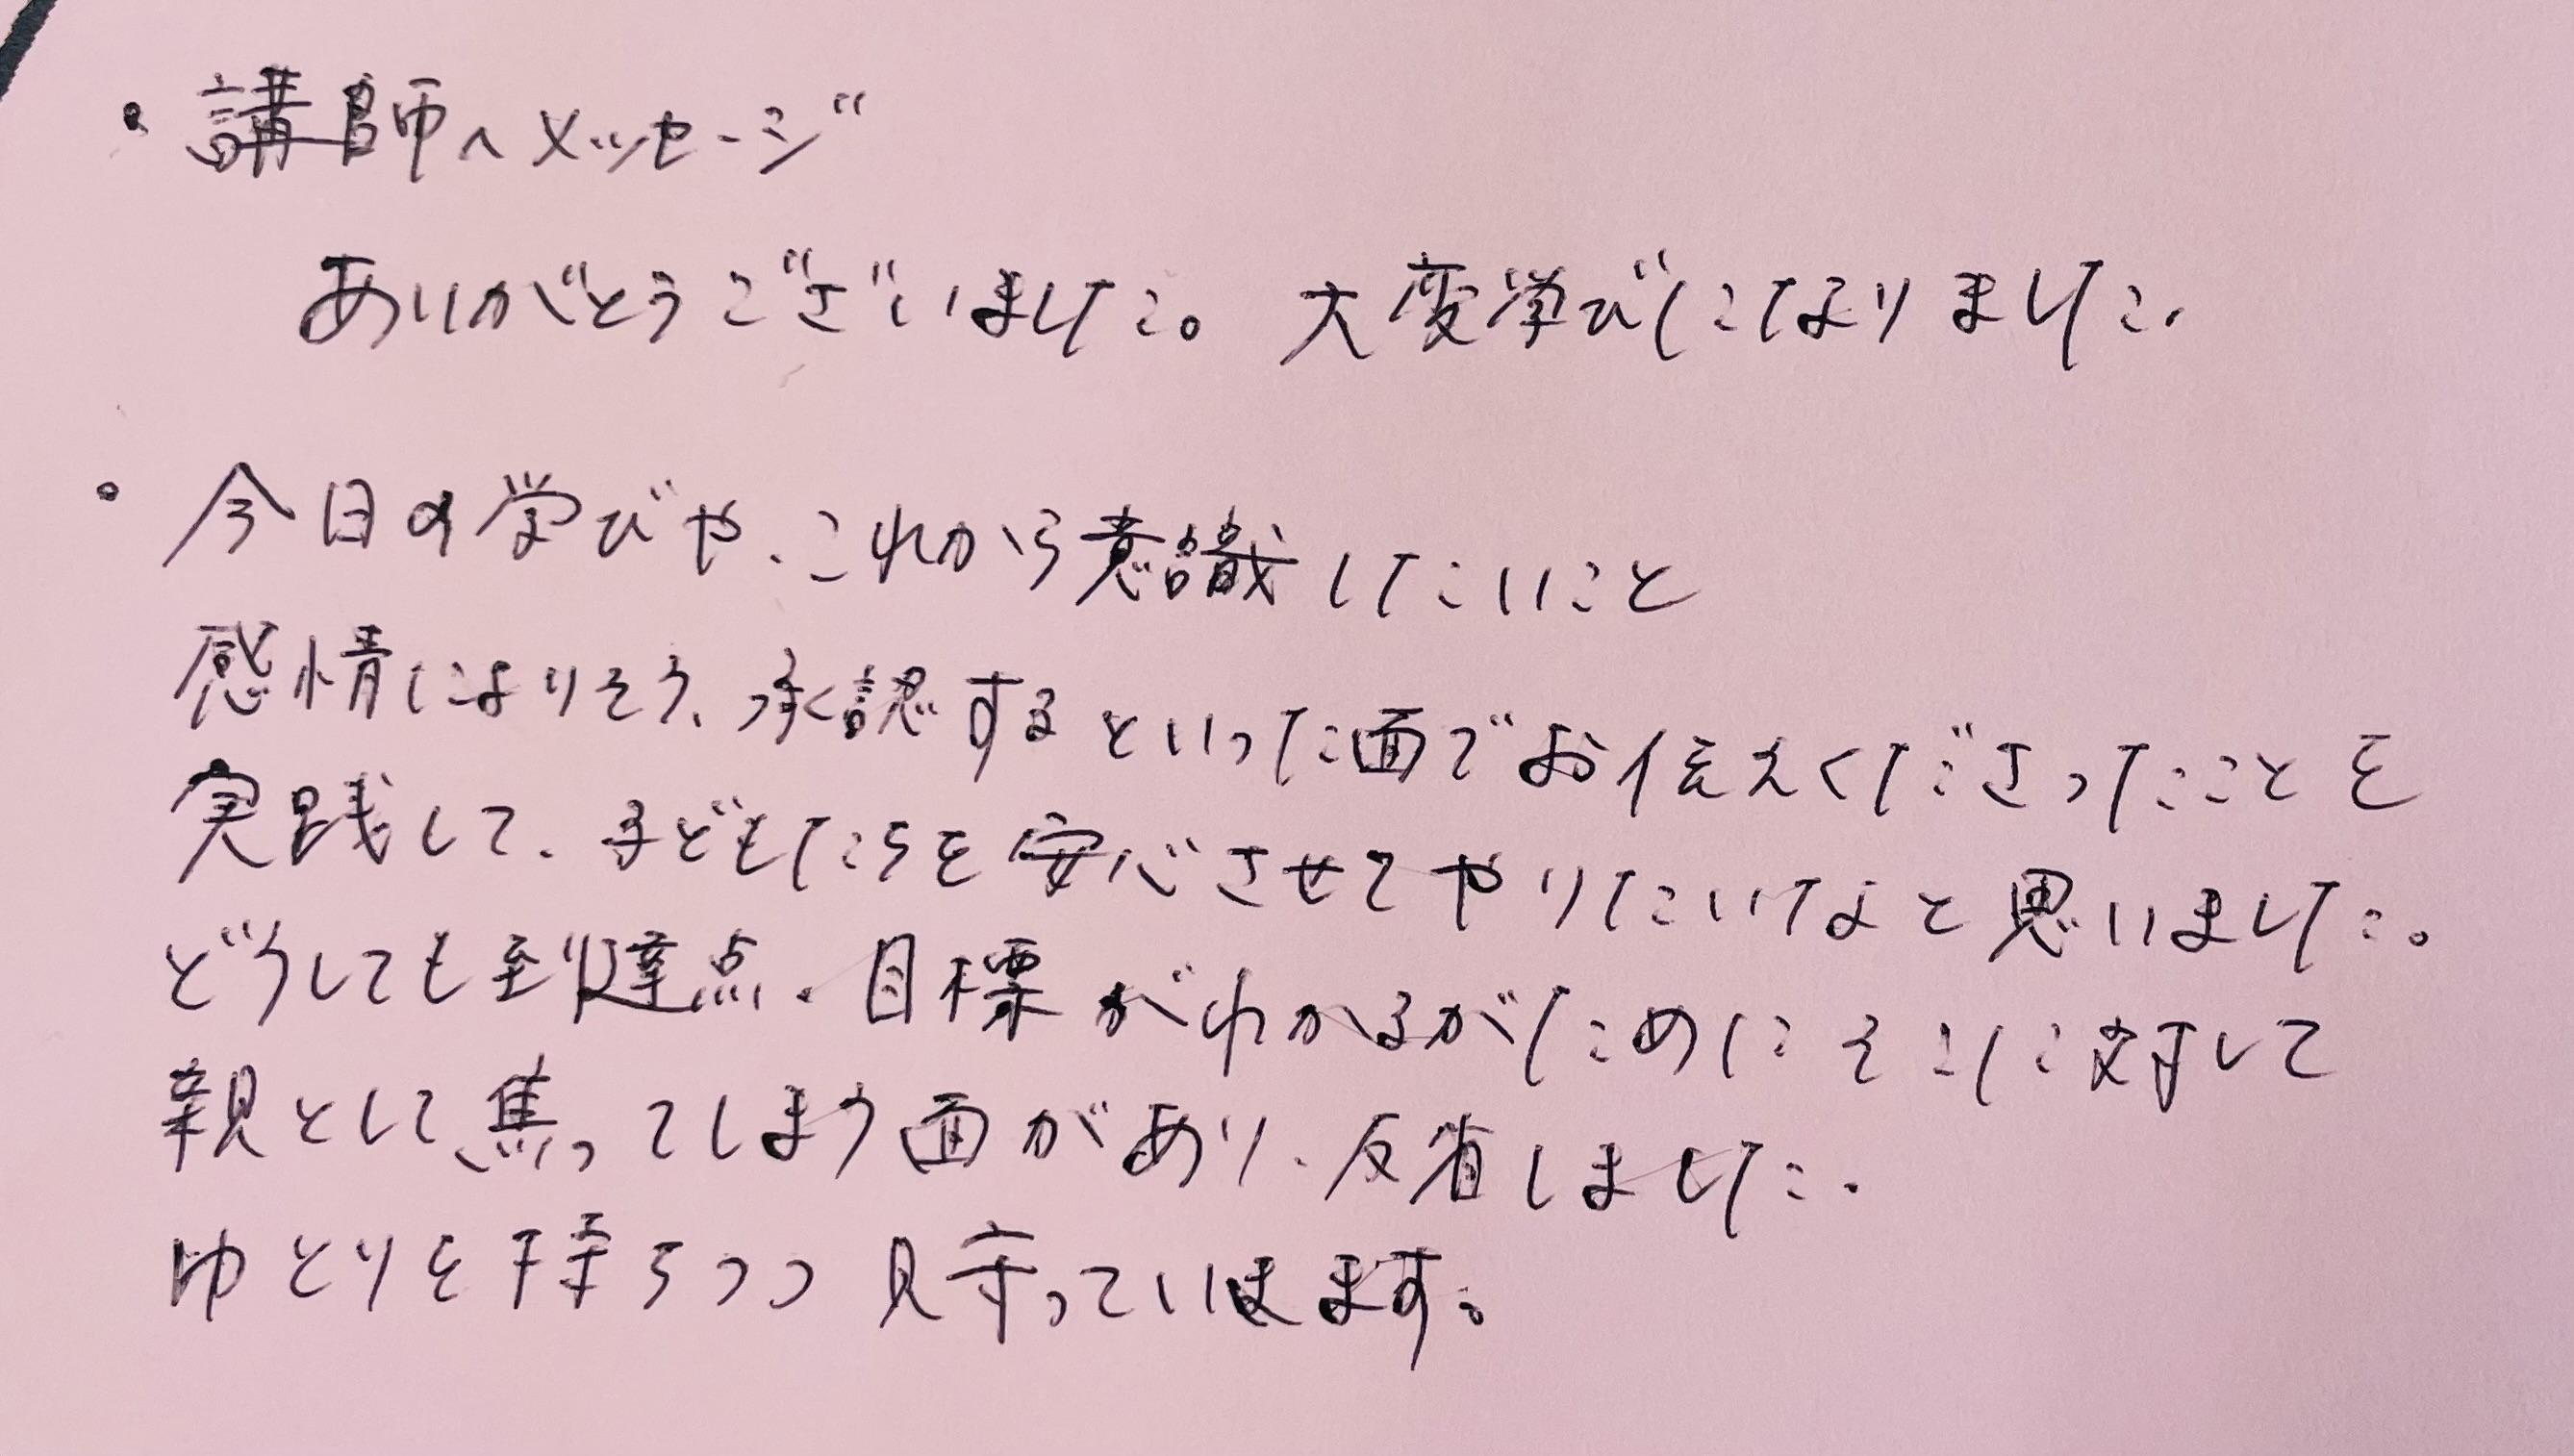 ・講師へメッセージ
ありがとうございました。大変学びになりました.
・今日の学びや、これから意識したいこと
感情によりそう、承認するといった面でお伝えくださったことを
実践して、子どもたちを安心させてやりたいなと思いました。
どうしても到達点・目標がわかるがためにそこに対して
親として、焦ってしまう面があり、反省しました.
ゆとりを持ちつつ見守っていきます。